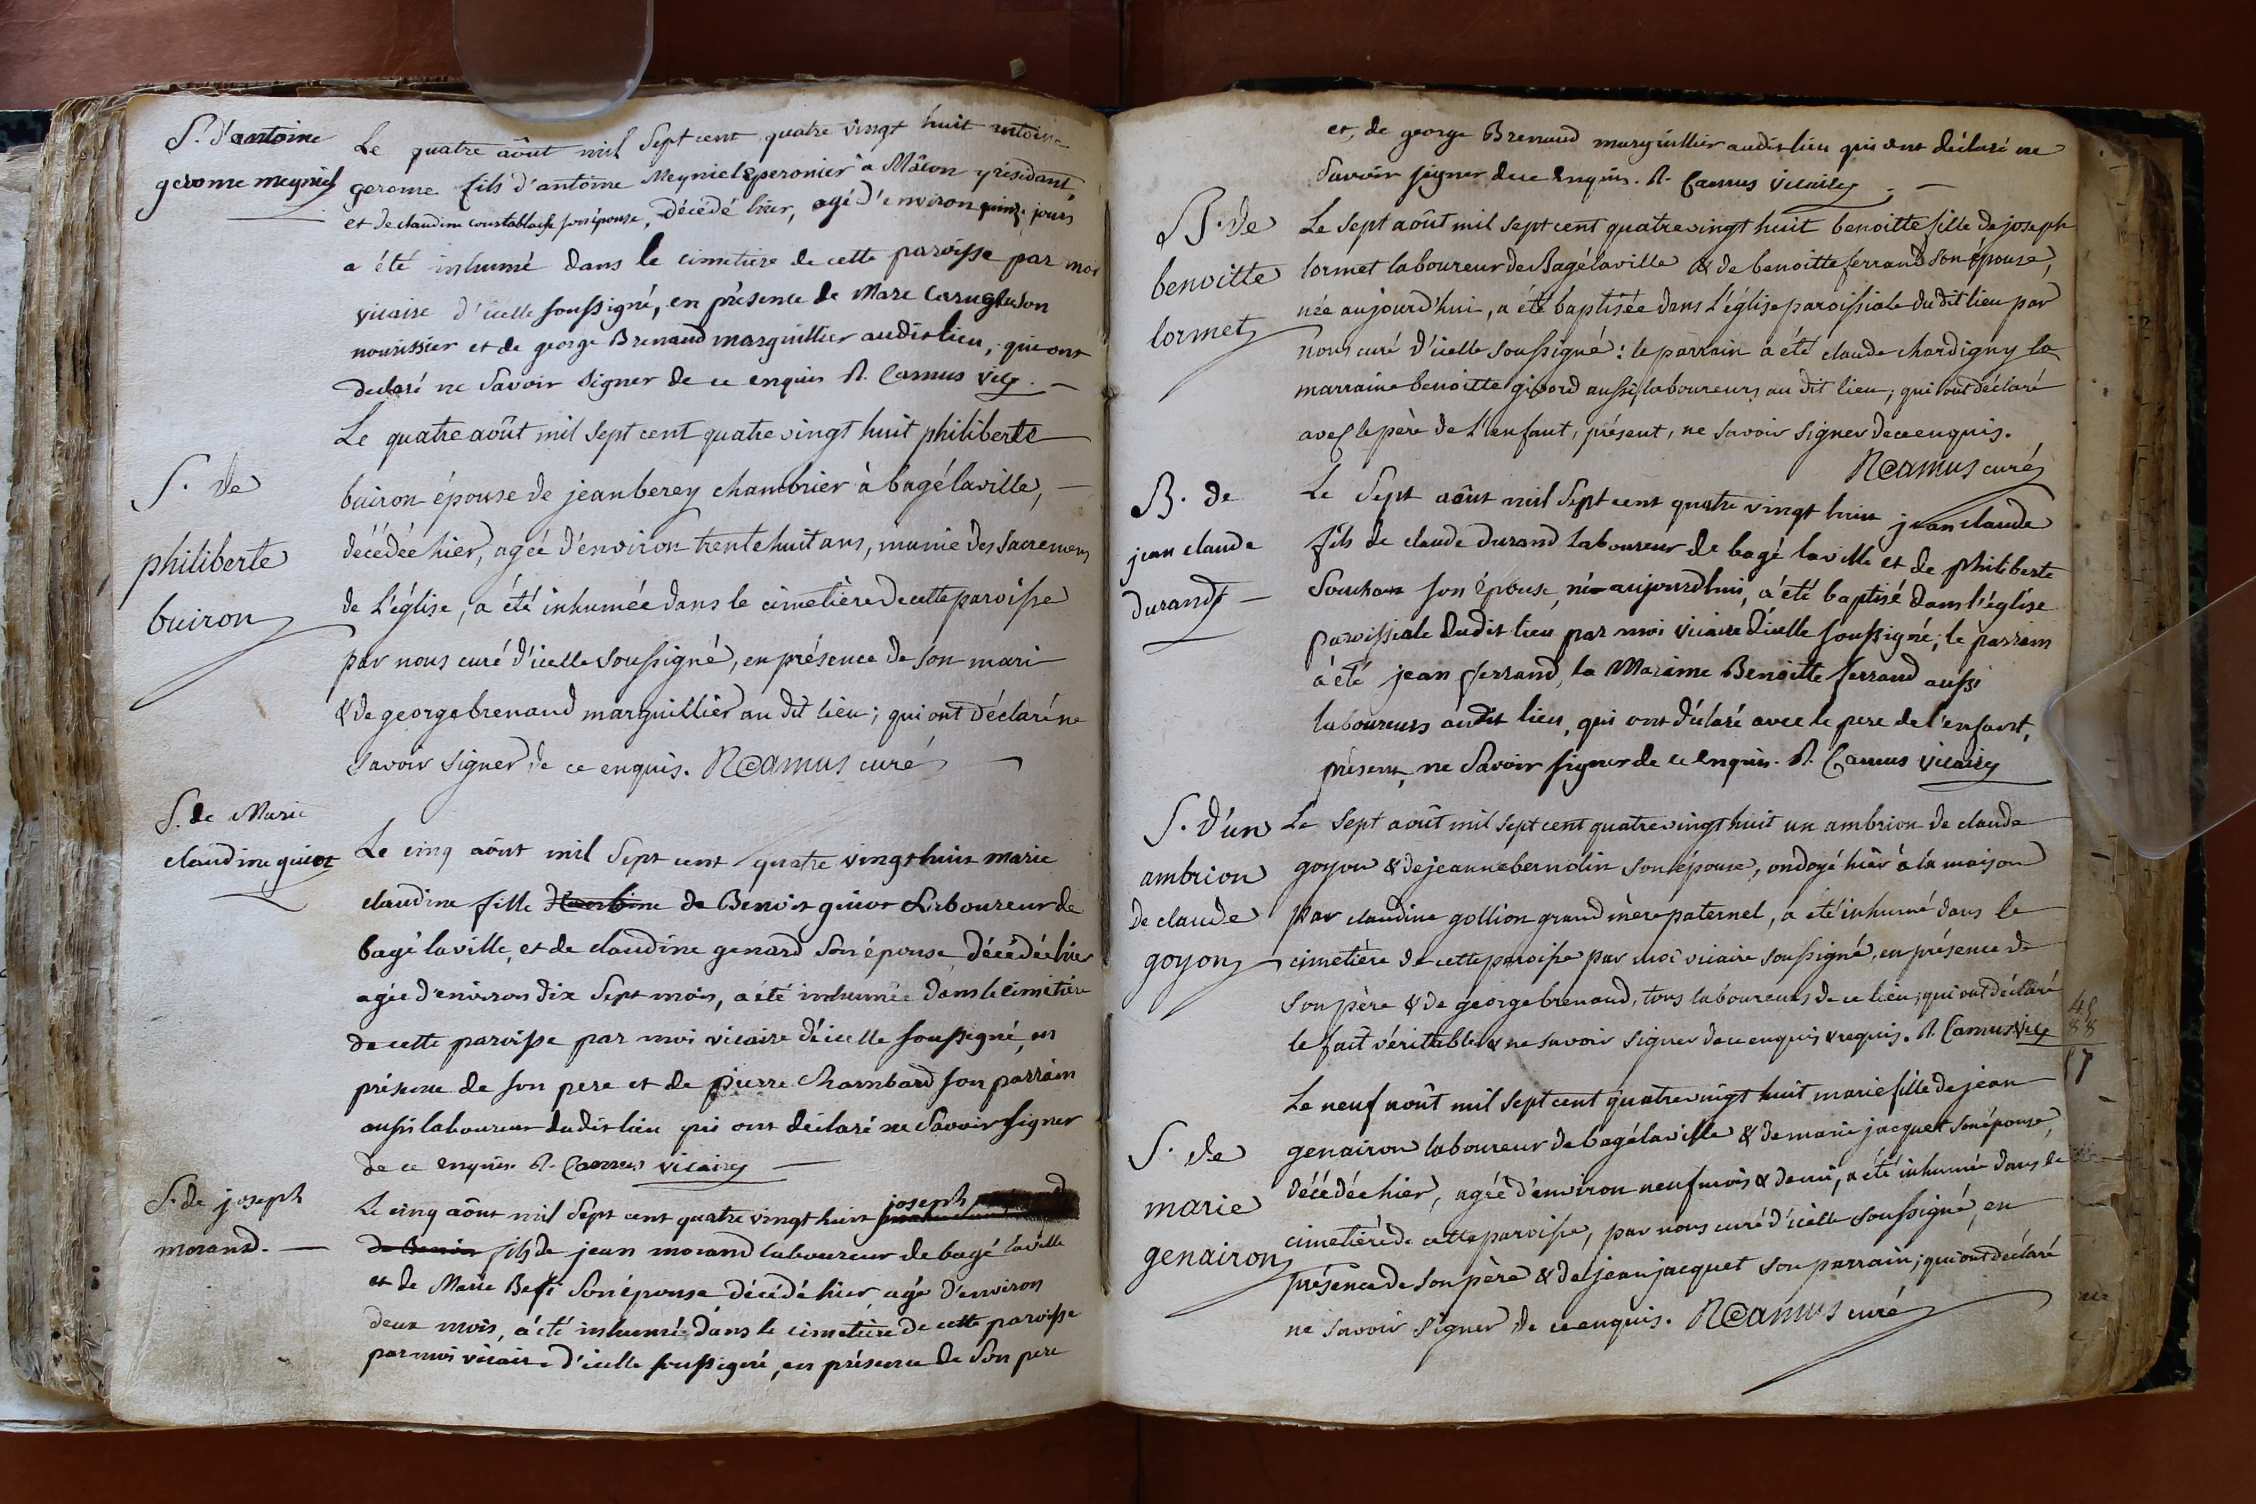 S. d'antoine
gerome meyniel
Le quatre août mil sept cent quatre vingt huit antoine
gerome fils d'antoine Meyniel éperonier à Mâcon y résidant
et de claudine son épouse, décédé hier, agé d'environ quinze jours
a été inhumé dans le cimetiere de cette paroisse par moi
vicaire d'icelle soussigné, en présence de Marc
nourissier et de george Brenaud marguillier audit lieu, qui ont
declaré ne Savoir Signer de ce enquis R. Camus vic.
S. de
philiberte
buiron
Le quatre août mil sept cent quatre vingt huit philiberte
buiron épouse de jean berey chambrier à bagé la ville,
décédée hier, agée d'environ trente huit ans, munie des Sacremens
de l'église, a été inhumée dans le cimetière de cette paroisse
par nous curé d'icelle soussigné, en présence de son mari
& de george brenaud marguillier au dit lieu; qui ont déclaré ne
savoir signer de ce enquis. R Camus curé
S. de Marie
claudine guiot
Le cinq août mil sept cent quatre vingt huit marie
claudine fille de Benoit guiot Laboureur de
bagé la ville, et de claudine genard son épouse, décédée hier
agée d'environ dix sept mois, a été inhumée dans le cimetière
de cette paroisse par moi vicaire d'icelle soussigné, en
présence de son pere et de pierre Chambard son parrain
aussi laboureur dudit lieu qui ont déclaré ne savoir signer
de ce enquis. R. Camus vicaire
S. de joseph
morand.
Le cinq août mil sept cent quatre vingt huit joseph
fils de jean morand laboureur de bagé la ville
et de Marie son épouse décédé hier, agé d'environ
deux mois, a été inhumé dans le cimetière de cette paroisse
par moi vicaire d'icelle soussigné, en présence de son pere
et, de george Brenaud marguillier audit lieu qui ont déclaré ne
Savoir signer de ce enquis. R. Camus vicaire
B. de
benoitte
lormet
Le sept août mil sept cent quatre vingt huit benoitte fille de joseph
lormet laboureur de Bagé la ville & de benoitte ferrand son épouse,
née aujourd'hui, a été baptisée dans l'église paroissiale du dit lieu par
nous curé d'icelle soussigné: le parrain a été claude chardigny la
marraine benoitte givord aussi laboureurs au dit lieu; qui ont déclaré
avec le père de l'enfant, présent, ne savoir signer de ce enquis.
R Camus curé
B. de
jean claude
durand
Le Sept août mil Sept cent quatre vingt huit jean claude
fils de claude durand laboureur de bagé la ville et de philiberte
Souchon son épouse, né aujourdhui, a été baptisé dans l'église
paroissiale dudit lieu par moi vicaire d'icelle soussigné; le parrain
a été jean ferrand, la Maraine Benoitte ferrand aussi
laboureurs audit lieu, qui ont déclaré avec le pere de l'enfant,
présent, ne Savoir signer de ce enquis. R. Camus vicaire
S. d'un
ambrion
de claude
goyon
Le Sept août mil sept cent quatre vingt huit un ambrion de claude
goyon & de jeanne bernolin son épouse, ondoyé hier à la maison
par claudine gollion grand mère paternel, a été inhumé dans le
cimetière de cette paroisse par moi vicaire soussigné, en présence de
son père & de george brenaud, tous laboureurs de ce lieu; qui ont déclaré
le fait véritable & ne savoir signer de ce enquis & requis. R. Camus vic
S. de
marie
genairon
Le neuf août mil sept cent quatre vingt huit marie fille de jean
genairon laboureur de bagé la ville & de marie jacquet son épouse,
décédée hier, agée d'environ neuf mois & demi, a été inhumée dans le
cimetière de cette paroisse, par nous curé d'icelle soussigné, en
présence de son père & de jean jacquet son parrain; qui ont déclaré
ne savoir signer de ce enquis. R Camus curé